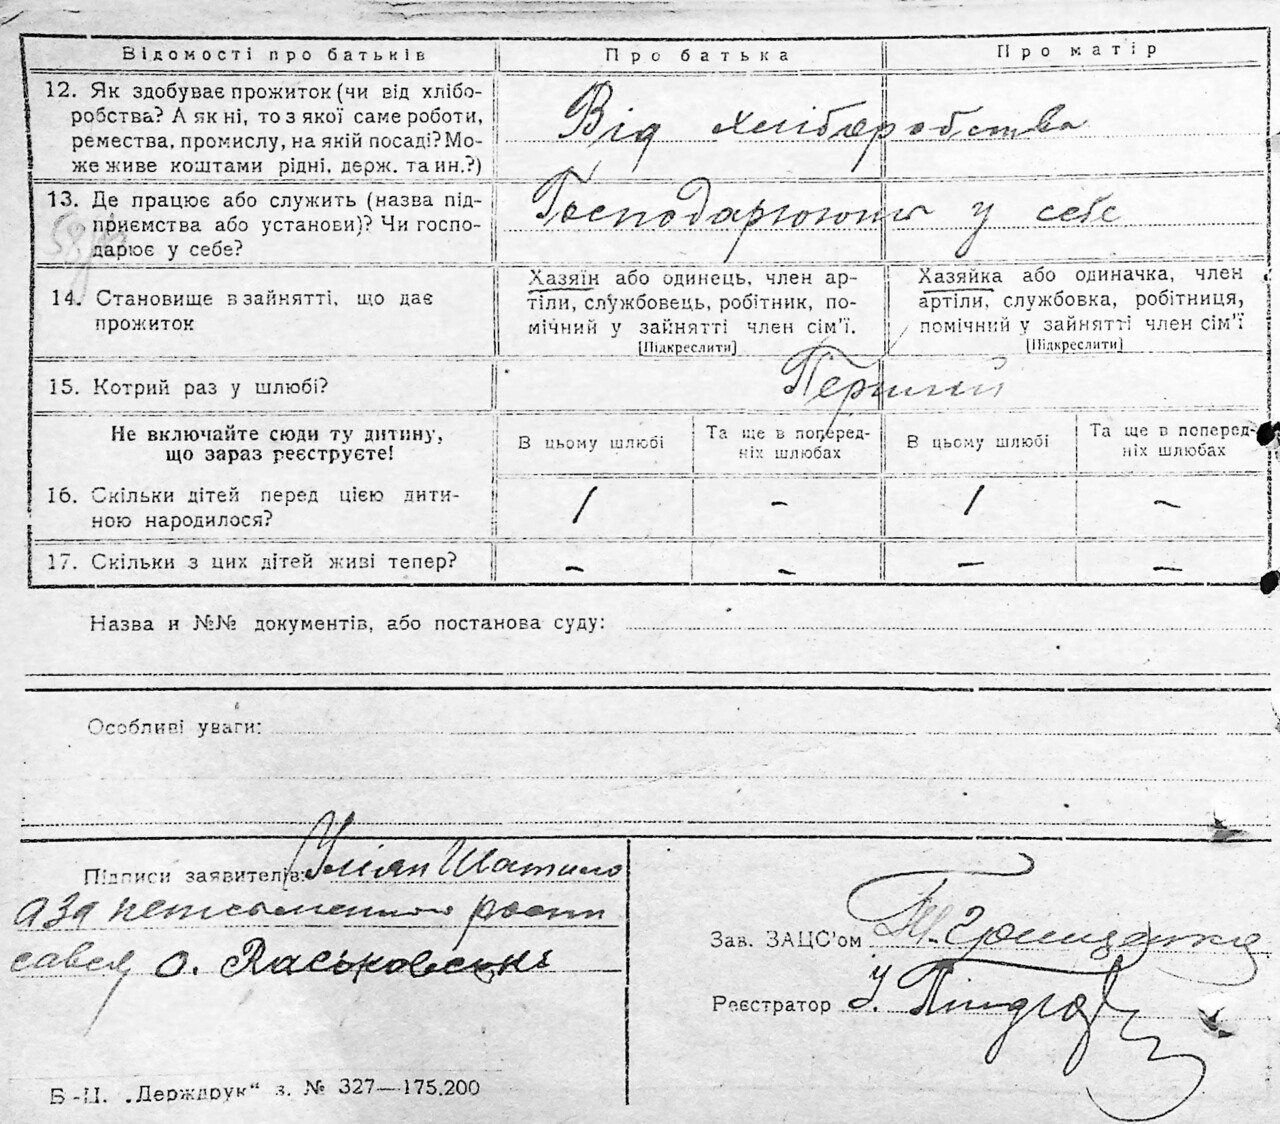 Відомості про батьків Про батька Про матір
12. Як здобуває прожиток (чи від хлібо-
робства? А як ні, то з якої саме роботи,
ремества, промислу, на якій посаді? Мо-
же живе коштами рідні, держ. та ин.?)
Від хліборобства
13. Де працює або служить (назва під-
приємства або установи)? Чи госпо-
дарює у себе?
Господарюють у себе
14. Становище в зайнятті, що дає
прожиток
Хазяїн або одинець, член ар-
тіли, службовець, робітник, по-
мічний у зайнятті член сім'ї.
[Підкреслити]
Хазяйка або одиначка, член
артіли, службовка, робітниця,
помічний у зайнятті член сім'ї
[Підкреслити]
15. Котрий раз у шлюбі?
Перший
Не включайте сюди ту дитину,
що зараз реєструєте!
В цьому шлюбі
Та ще в поперед-
ніх шлюбах
В цьому шлюбі
Та ще в поперед-
ніх шлюбах
16. Скільки дітей перед цією дити-
ною народилося?
1 - 1 -
17. Скільки з цих дітей живі тепер?
- - - -
Назва и №№ документів, або постанова суду:
Особливі уваги:
Підписи заявителів:
а за
о.
Зав. ЗАЦС'ом
Реєстратор
Б-Ц. „Держдрук“ з. № 327—175.200